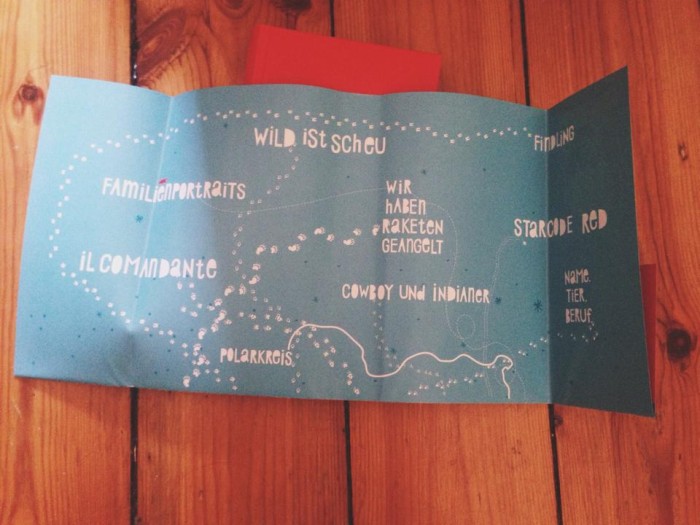 WILD IST SCHEU
FINDLING
FAMILIENPORTRAITS
WIR
HABEN
RAKETEN
GEANGELT
STARCODE RED
IL COMANDANTE
COWBOY UND INDIANER
NAME.
TIER.
BERUF.
POLARKREIS